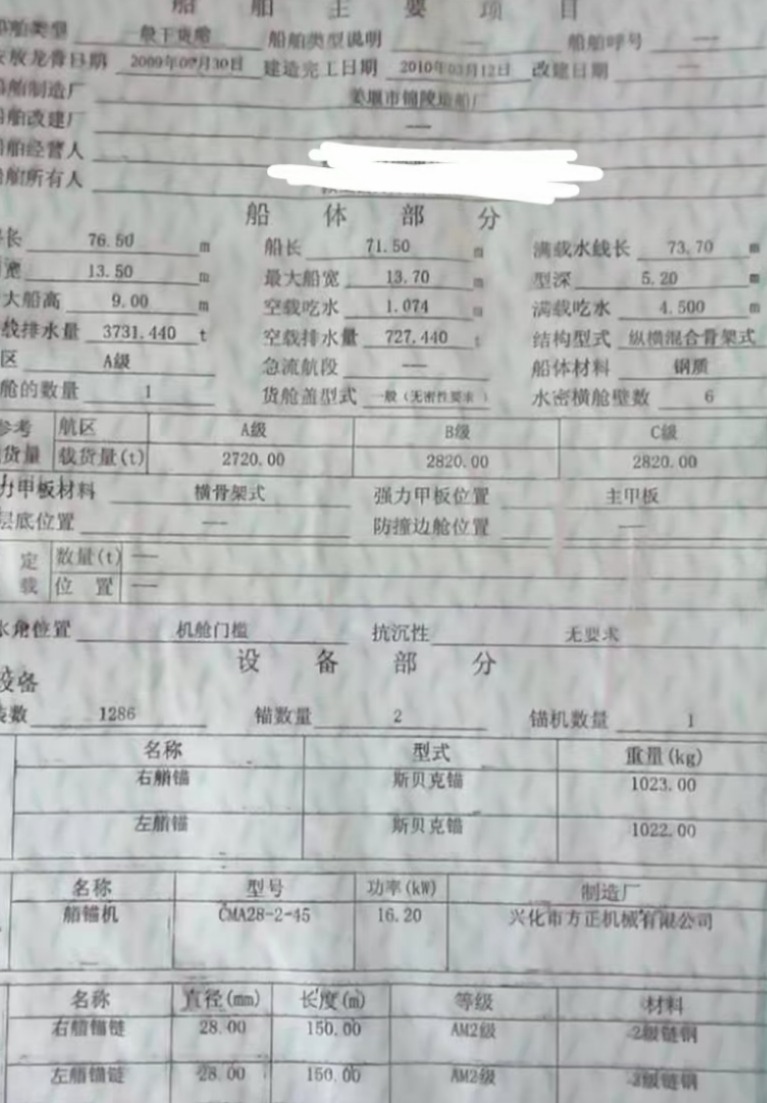 船 舶 主 要 项 目
船舶类型 一般干货船 船舶类型说明 — 船舶呼号 —
安放龙骨日期 2009年09月30日 建造完工日期 2010年03月12日 改建日期 —
船舶制造厂 姜堰市锦陵造船厂
船舶改建厂 —
船舶经营人
船舶所有人
船 体 部 分
长 76.50 m 船长 71.50 m 满载水线长 73.70 m
宽 13.50 m 最大船宽 13.70 m 型深 5.20 m
大船高 9.00 m 空载吃水 1.074 m 满载吃水 4.500 m
载排水量 3731.440 t 空载排水量 727.440 t 结构型式 纵横混合骨架式
区 A级 急流航段 — 船体材料 钢质
舱的数量 1 货舱盖型式 一般（无密性要求） 水密横舱壁数 6
参考 航区 A级 B级 C级
货量 载货量(t) 2720.00 2820.00 2820.00
力甲板材料 横骨架式 强力甲板位置 主甲板
层底位置 — 防撞边舱位置 —
定 数量(t) —
载 位 置 —
水角位置 机舱门槛 抗沉性 无要求
设 备 部 分
设备
装数 1286 锚数量 2 锚机数量 1
名称 型式 重量(kg)
右艏锚 斯贝克锚 1023.00
左艏锚 斯贝克锚 1022.00
名称 型号 功率(kW) 制造厂
艏锚机 CMA28-2-45 16.20 兴化市方正机械有限公司
名称 直径(mm) 长度(m) 等级 材料
右艏锚链 28.00 150.00 AM2级 2级链钢
左艏锚链 28.00 150.00 AM2级 级链钢